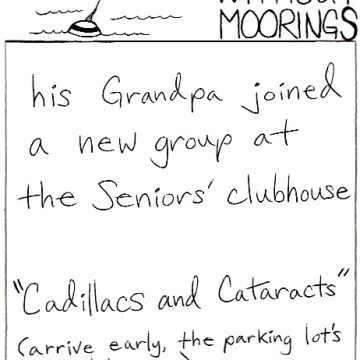 MOORINGS
his Grandpa joined
a new group at
the Seniors' clubhouse
"Cadillacs and Cataracts"
(arrive early, the parking lot's